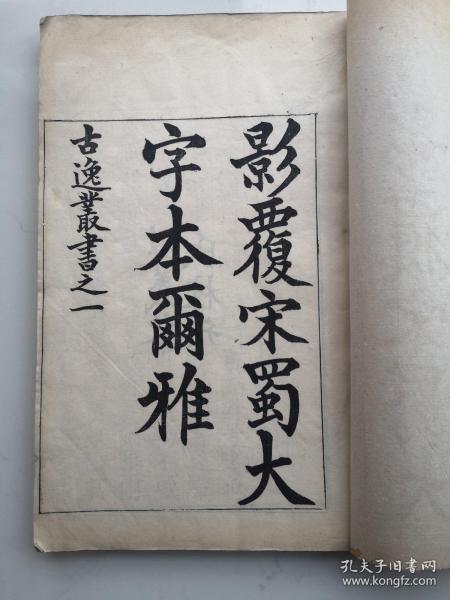 影覆宋蜀大
字本爾雅
古逸叢書之一
孔夫子旧书网
www.kongfz.com